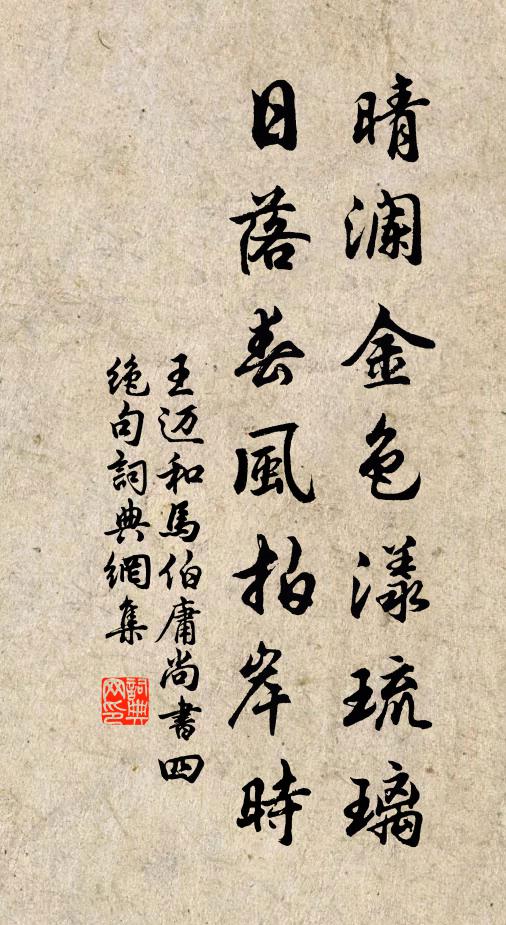 晴澜金色漾琉璃
日落春風拍岸時
王迈和馬伯庸尚書四
絶句詞典網集
詞典
网印